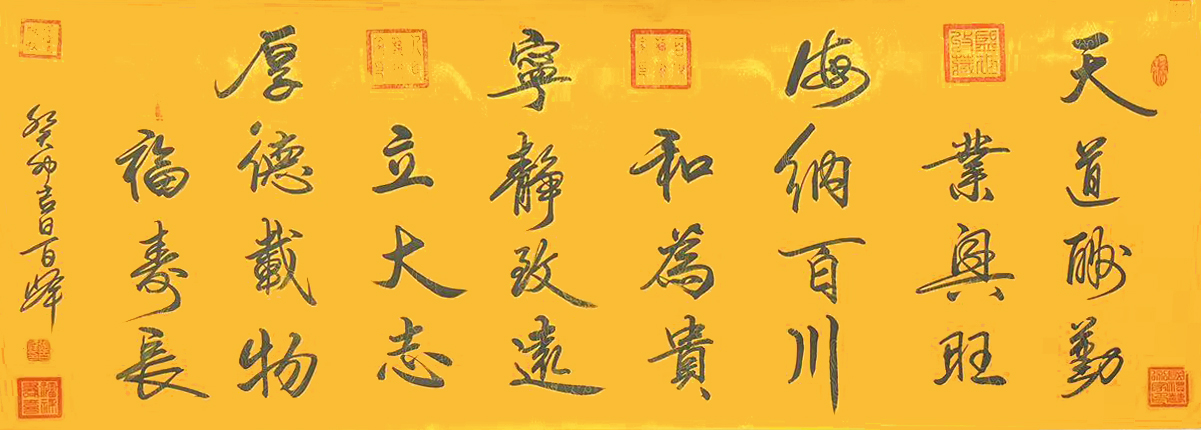 天道酬勤
業興旺
海納百川
和為貴
寧靜致遠
立大志
厚德載物
福壽長
癸卯吉日百峰